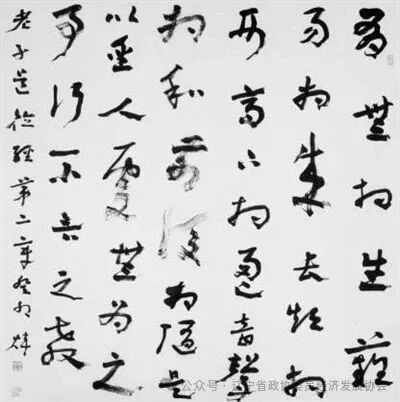 有無相生難
易相成長短相
形高下相音聲
相和前後相隨是
以聖人處無為之
事行不言之教
老子道德經第二章癸卯
公众号 · 辽宁省政协委员经济发展协会